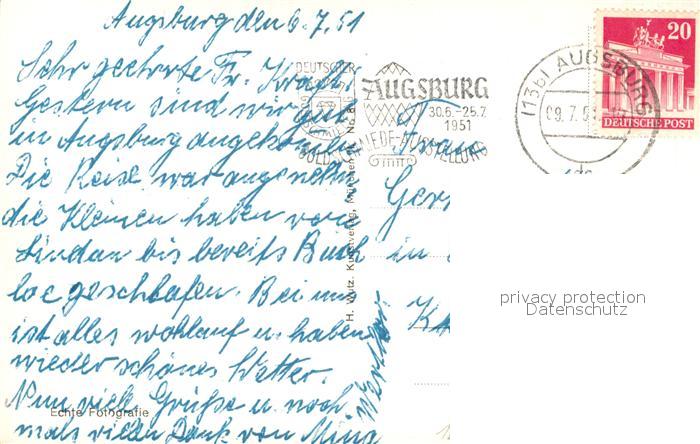 Augsburg den 6.7.51
Sehr geehrte Fr. Kraft!
Gestern sind wir gut
in Augsburg angekommen
Die Reise war angenehm
die Kleinen haben von
Lindau bis bereits Buch
loe geschlafen. Bei uns
ist alles wohlauf u. haben
wieder schönes Wetter.
Nun viele Grüße u. noch
mals vielen Dank von Mina
Echte Fotografie
H. Wutz, Kunstverlag, München
DEUTSCHER
GOLD
AUGSBURG
30.6.-25.7.
1951
AUSSTELLUNG
(13b) AUGSBURG
09.7.5
20
DEUTSCHE POST
Frau
in
privacy protection
Datenschutz